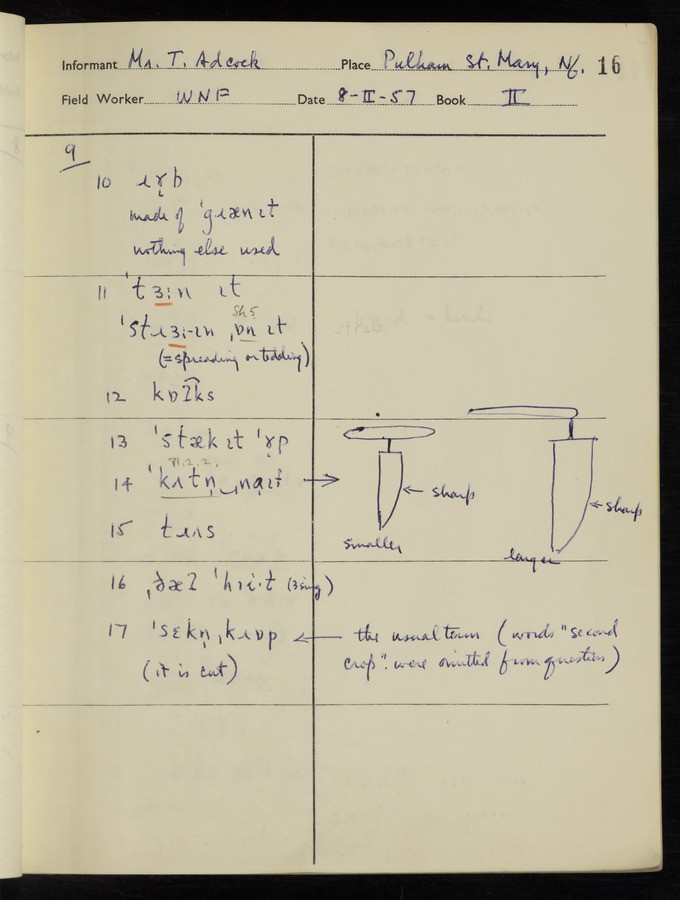 Informant Mr. T. Adcock Place Pulham St. Mary, Nf. 16
Field Worker WNF Date 8-II-57 Book II
9
10 ɹɤ̨b
made of 'gɹæn ɪt
nothing else used
11 't3:n ɪt
Sh5
'stɹ3:-ɪn ˌɒn ɪt
(= spreading or tedding)
12 kɒɪks
13 'stæk ɪt 'ɤ̨p
VI.2.2.
14 'kʌtn̩ ˌnaɪf →
sharp
sharp
smaller
larger
15 tɹʌs
16 ˌðæʔ 'hɹi·t (3 sing)
17 'sɛkn̩ ˌkɹɒp ← the usual term (words "second
(it is cut) crop" were omitted from question)